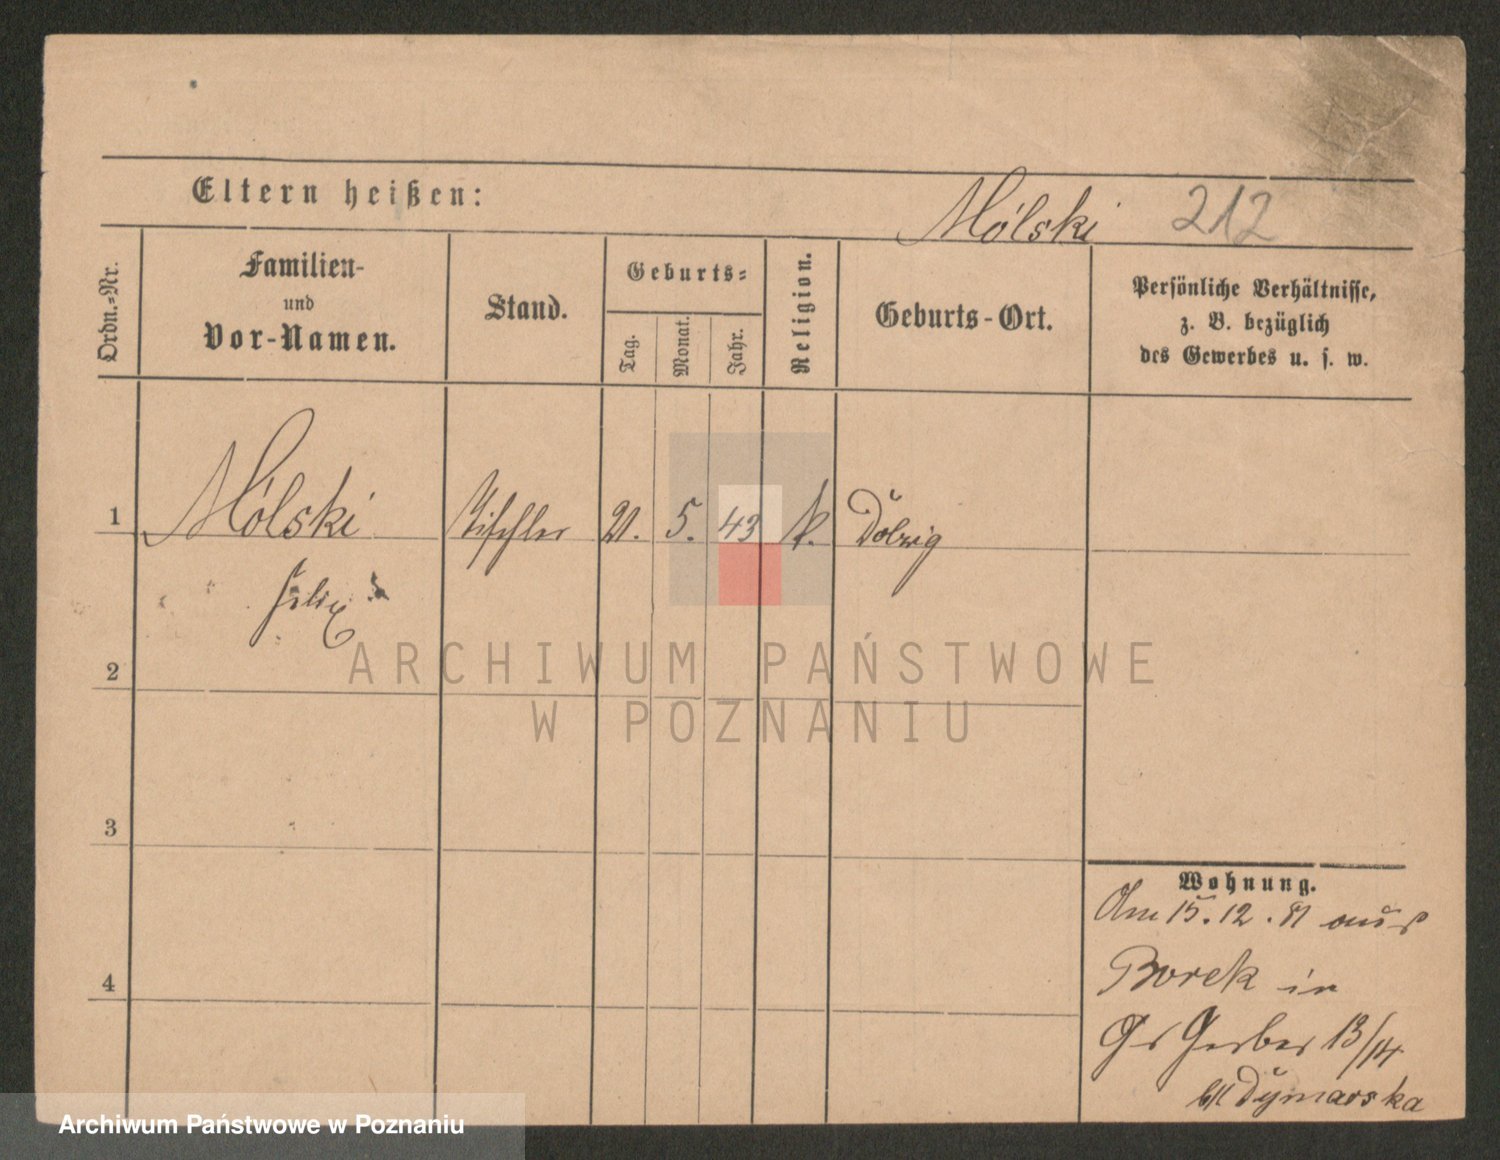 Eltern heißen:
Mólski 212
Ordn.=Nr.
Familien-
und
Vor-Namen.
Stand.
Geburts=
Tag.
Monat.
Jahr.
Religion.
Geburts-Ort.
Persönliche Verhältnisse,
z. B. bezüglich
des Gewerbes u. s. w.
1 Mólski Tischler 21. 5. 43 k. Dolzig
Felix
2
3
4
Wohnung.
Am 15.12.81 aus
Borek in
Gr Gerber 13/14
b/ Dymarska
ARCHIWUM PAŃSTWOWE
W POZNANIU
Archiwum Państwowe w Poznaniu